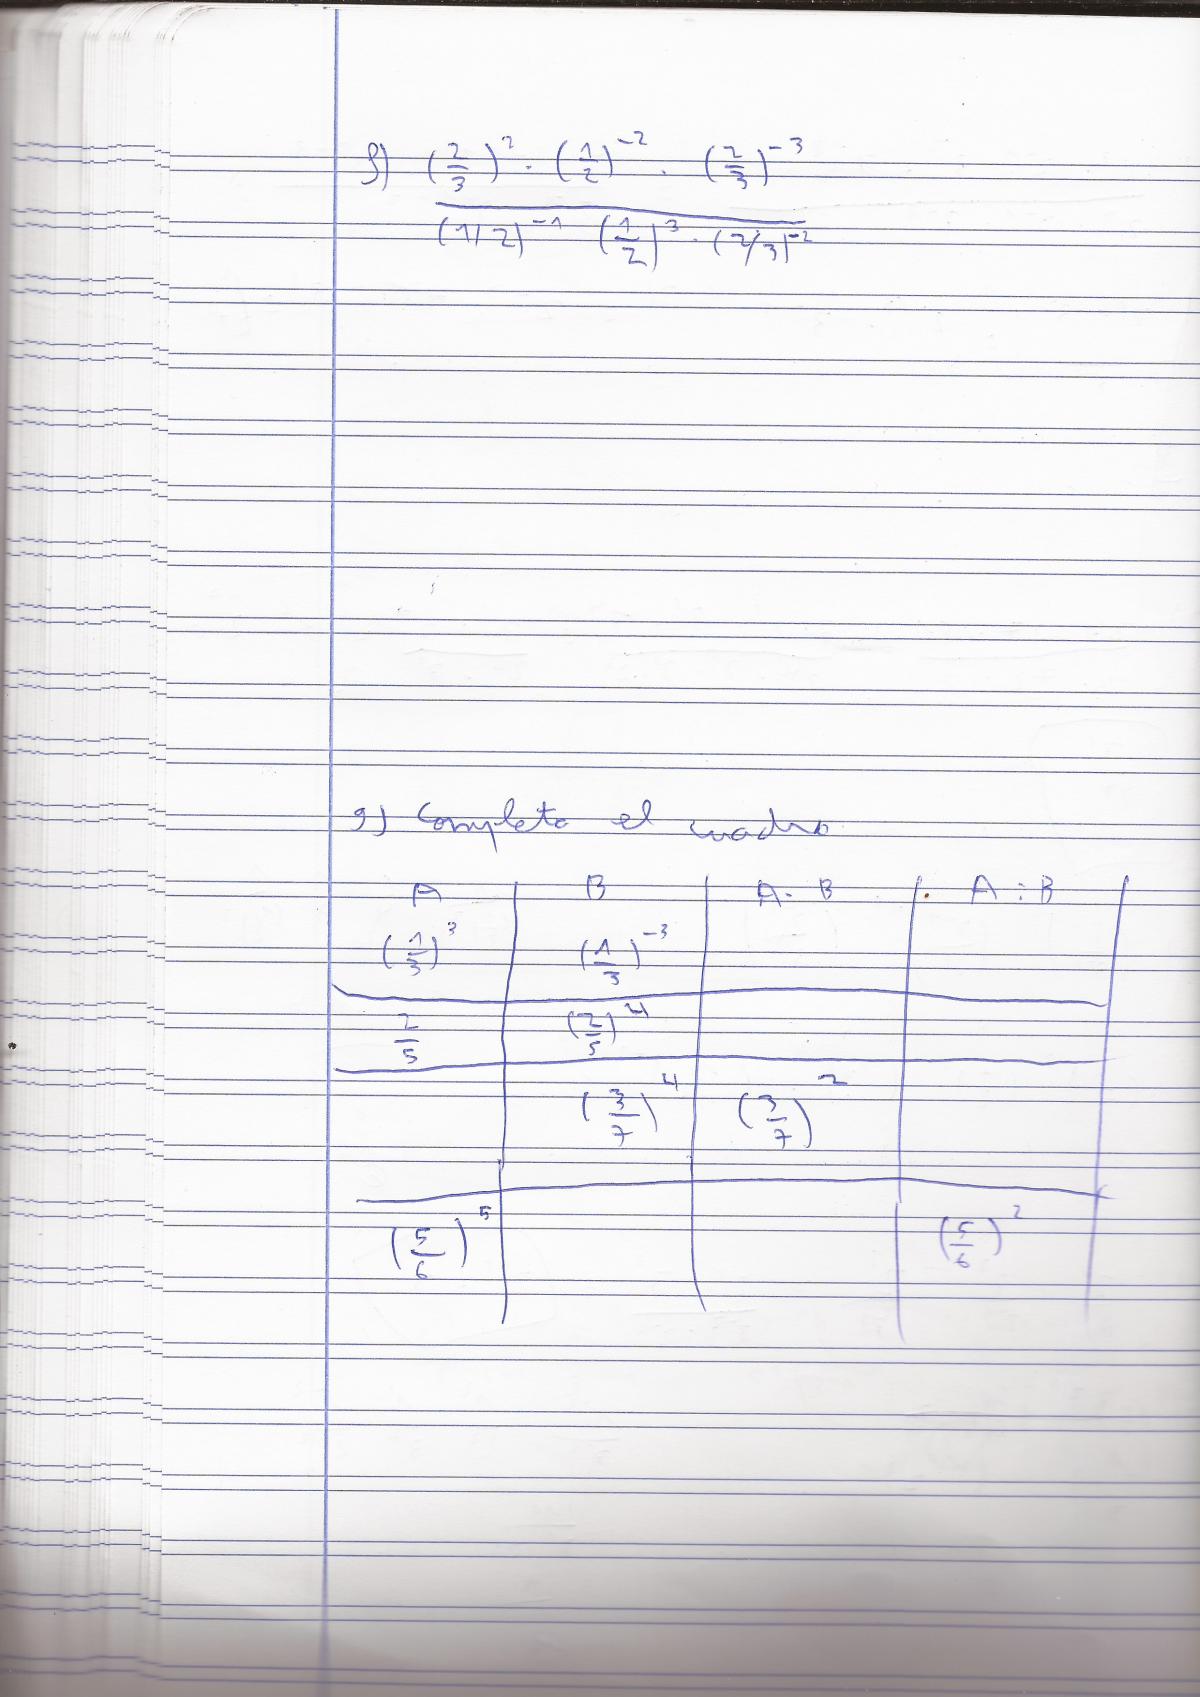 f) (2/3)² · (1/2)⁻² · (2/3)⁻³
(1/2)⁻¹ (1/2)³ · (2/3)⁻²
9) Completa el cuadro
A B A · B A : B
(1/3)³ (1/3)⁻³
2/5 (2/5)⁴
(3/7)⁴ (3/7)²
(5/6)⁵ (5/6)²